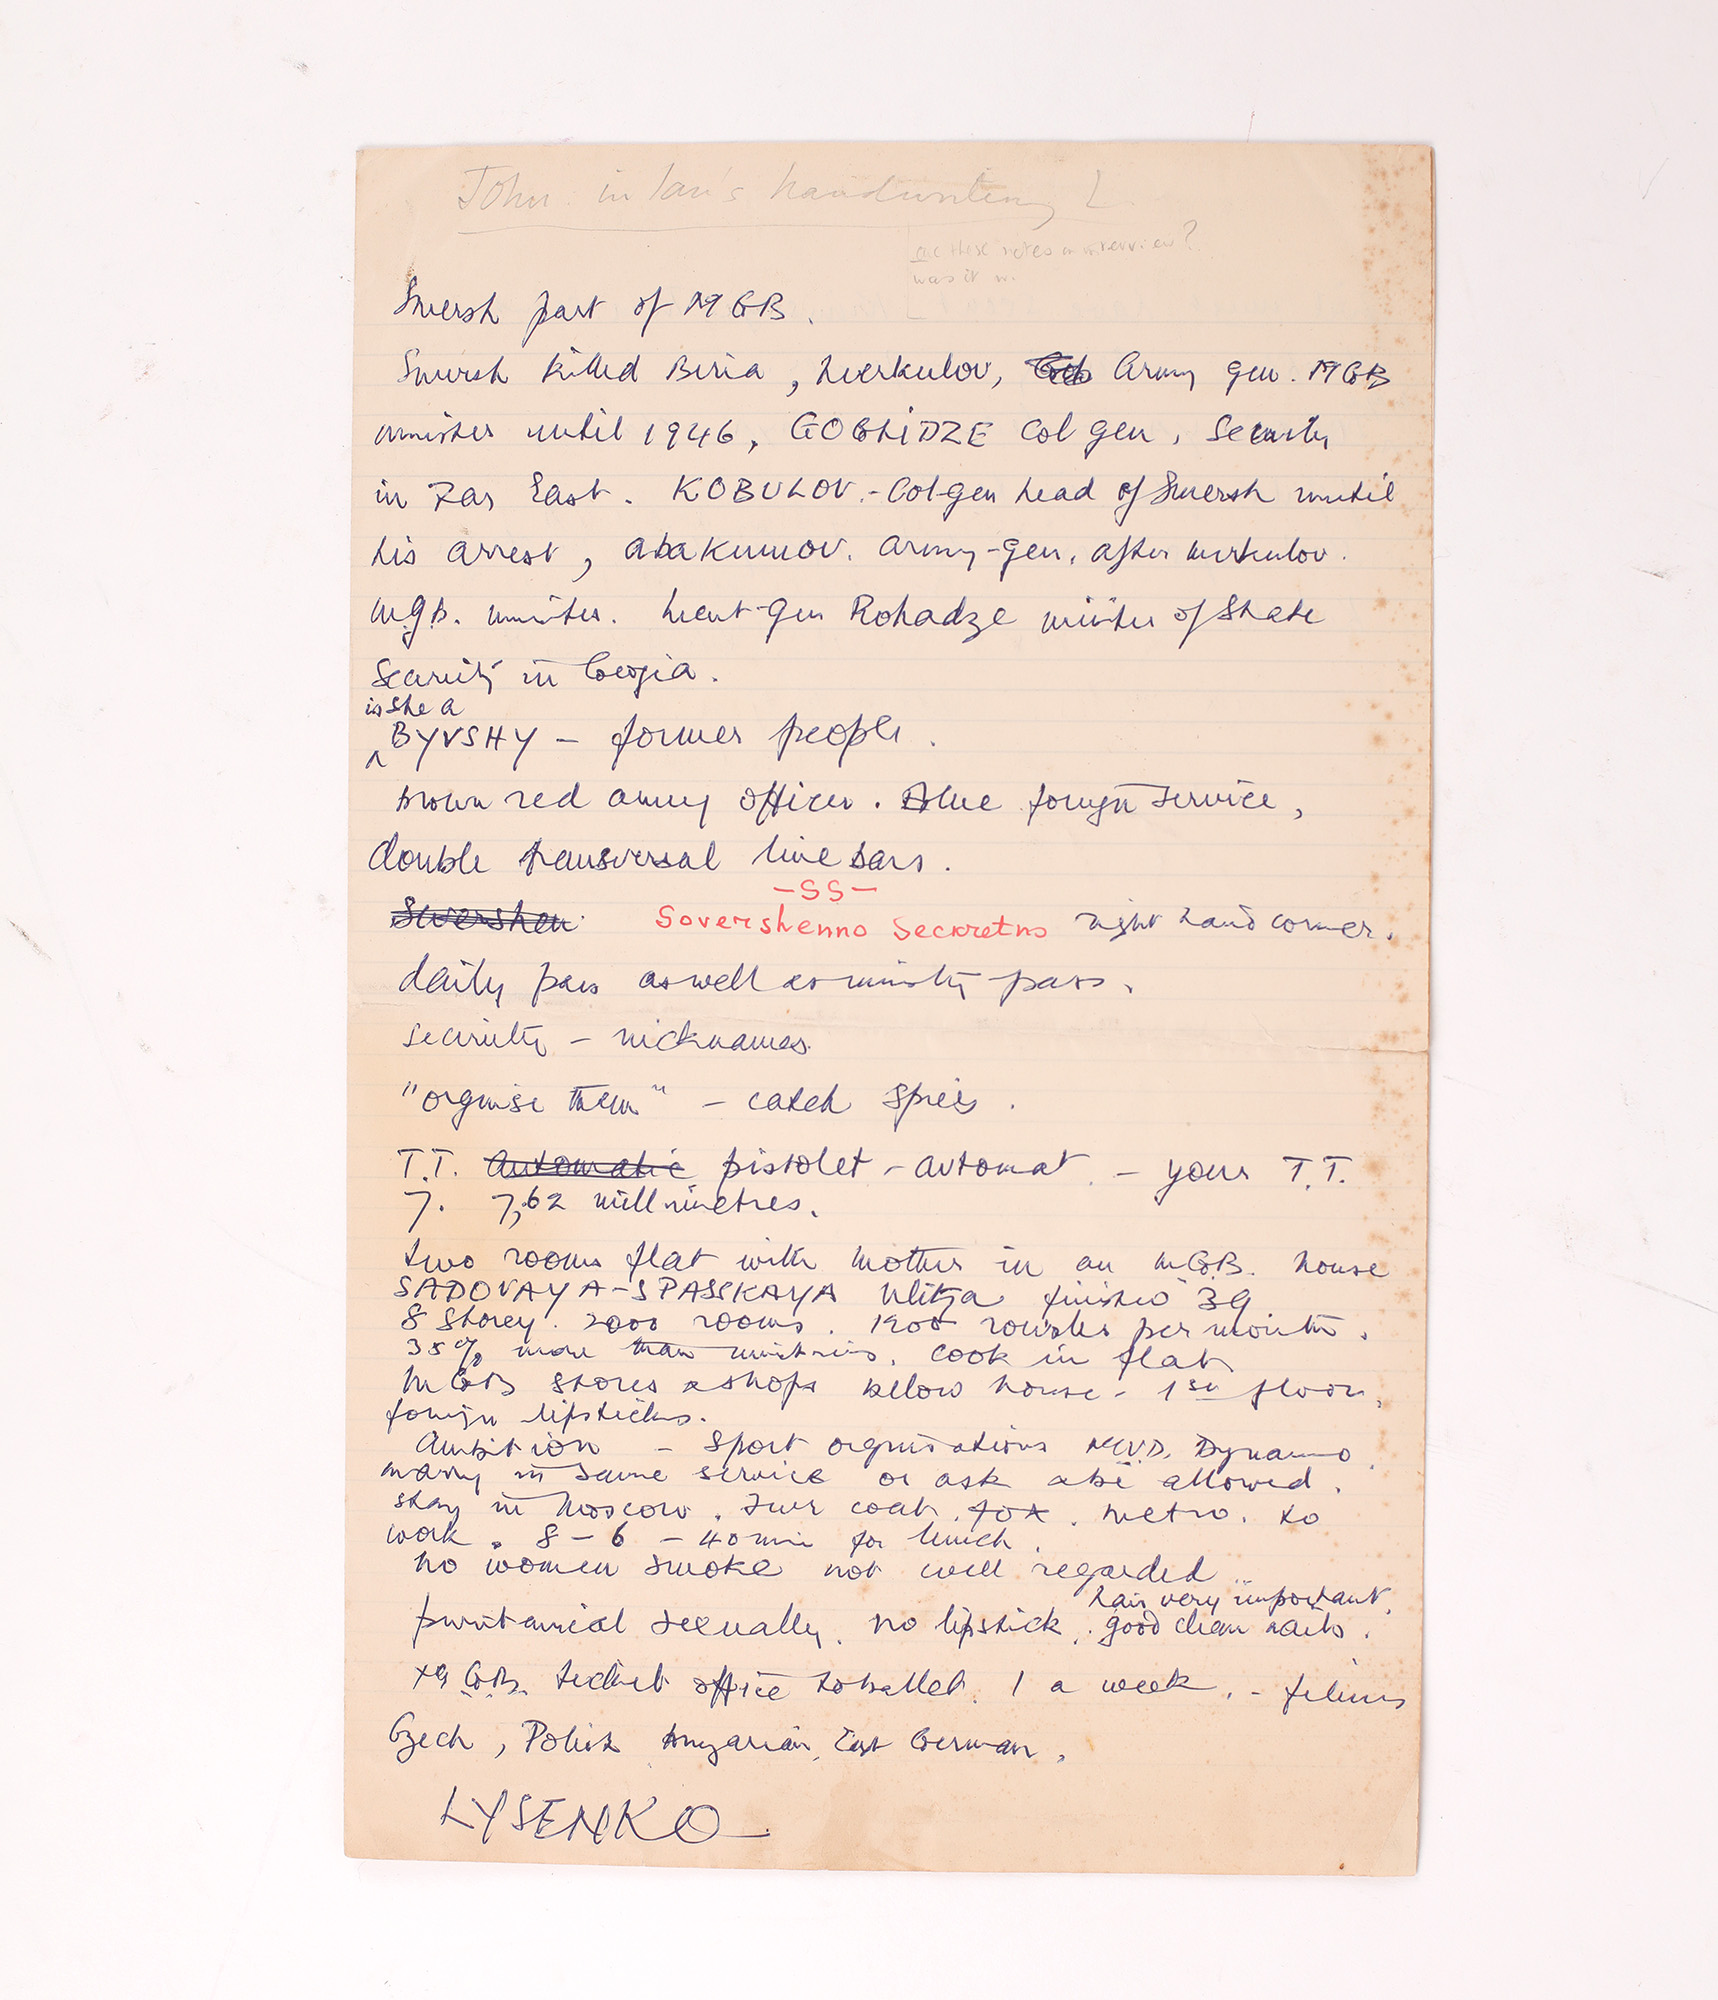 John in Ian's handwriting
are these notes on interview?
was it
Smersh part of MGB.
Smersh killed Beria, Merkulov, Army gen. MGB
minister until 1946, GOGLIDZE Col gen, Security
in Far East. KOBULOV.- Col-gen head of Smersh until
his arrest, abakumov. army-gen. after Merkulov.
M.g.B. minister. Lieut-Gen Rohadze minister of State
Security in Georgia.
is she a
BYVSHY - former people.
brown red army officer. Blue foreign service,
double transversal line bars.
- SS -
Sovershen Sovershenno Seckretno right hand corner.
daily pass as well as ministry pass.
security - nicknames.
"orgnise them" - catch spies.
T.T. Automatic pistolet - avtomat - your T.T.
7. 7,62 millimetres.
two rooms flat with mother in an M.G.B. house
SADOVAYA-SPASSKAYA Ulitza finished 39
8 Storey. 2000 rooms. 1200 roubles per month.
more than ministries. Cook in flat
MGB stores & shops below house - 1st floor.
foreign lipsticks.
Ambition - Sport orgnisations M.V.D. Dynamo.
marry in same service or ask to be allowed.
stay in Moscow. Fur coat. fox. metro. to
work. 8 - 6 - 40 min for lunch.
no women smoke not well regarded
hair very important.
puritanical sexually. no lipstick. good clean nails.
M.G.B. ticket office to ballet. 1 a week. - films
Czech, Polish Hungarian, East German.
LYSENKO